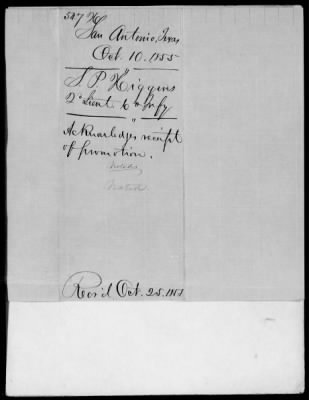 527 H
San Antonio, Texas
Oct. 10. 1855
S. P. Higgins
2d Lieut. 6th Infy
Acknowledges receipt
of promotion.
Noted
Rec'd Oct. 25. 1855